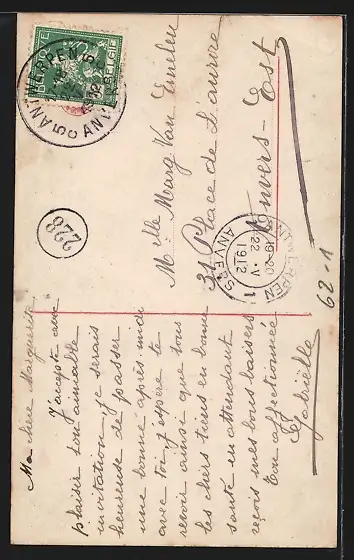 Ma chère Marguerite
J'accepte avec
plaisir ton aimable
invitation, je serais
heureuse de passer
une bonne après midi
avec toi, j'espère te
revoir ainsi que tous
les chers tiens en bonne
santé en attendant
reçois mes bons baisers
Ton affectionnée
Gabrielle
Melle Marg Van
31 Place de L'aurore
Anvers-Est
BELGIE
BELGIQUE
5
ANTWERPEN
ANVERS
19-20
22-V
1912
1
228
62-1